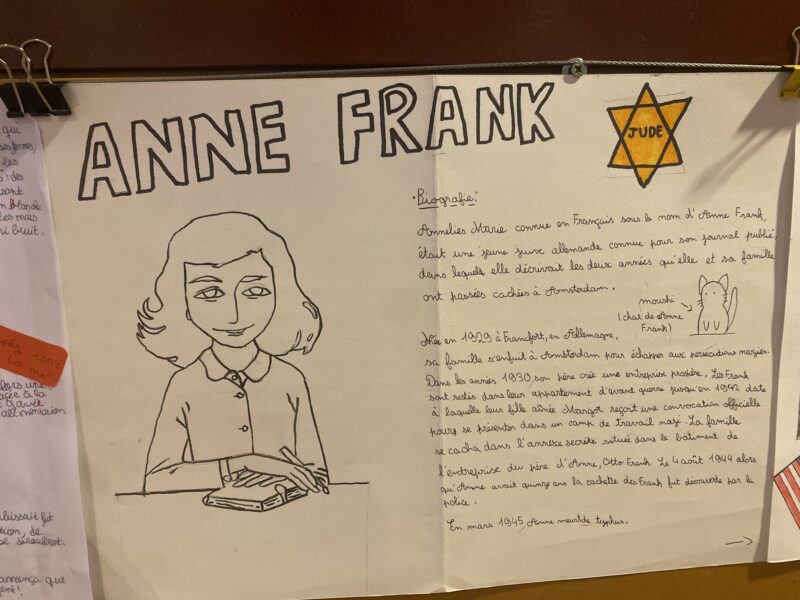 ANNE FRANK
JUDE
• Biografie:
Annelies Marie connue en Français sous le nom d'Anne Frank,
était une jeune juive allemande connue pour son journal publié,
dans lequels elle décrivait les deux années qu'elle et sa famille
ont passées cachées à Amsterdam.
moushi
(chat de Anne
Frank)
Née en 1929 à Francfort, en Allemagne,
sa famille s'enfuit à Amsterdam pour échapper aux persécutions nazies.
Dans les années 1930 son père crée une entreprise prospère. Les Frank
sont restés dans leur appartement d'avant guerre jusqu'en 1942 date
à laquelle leur fille aînée Margot reçoit une convocation officielle
pour se présenter dans un camp de travail nazi. La famille
se cacha dans l'annexe secrète située dans le bâtiment de
l'entreprise du père d'Anne, Otto Frank. Le 4 août 1944 alors
qu'Anne avait quinze ans la cachette des Frank fut découverte par la
police.
En mars 1945 Anne meurt de typhus.
que
les
des
sant
blanche
tes mais
ni bruit.
only isn't
fors une
à la
alimentation
fut
tion, se
que